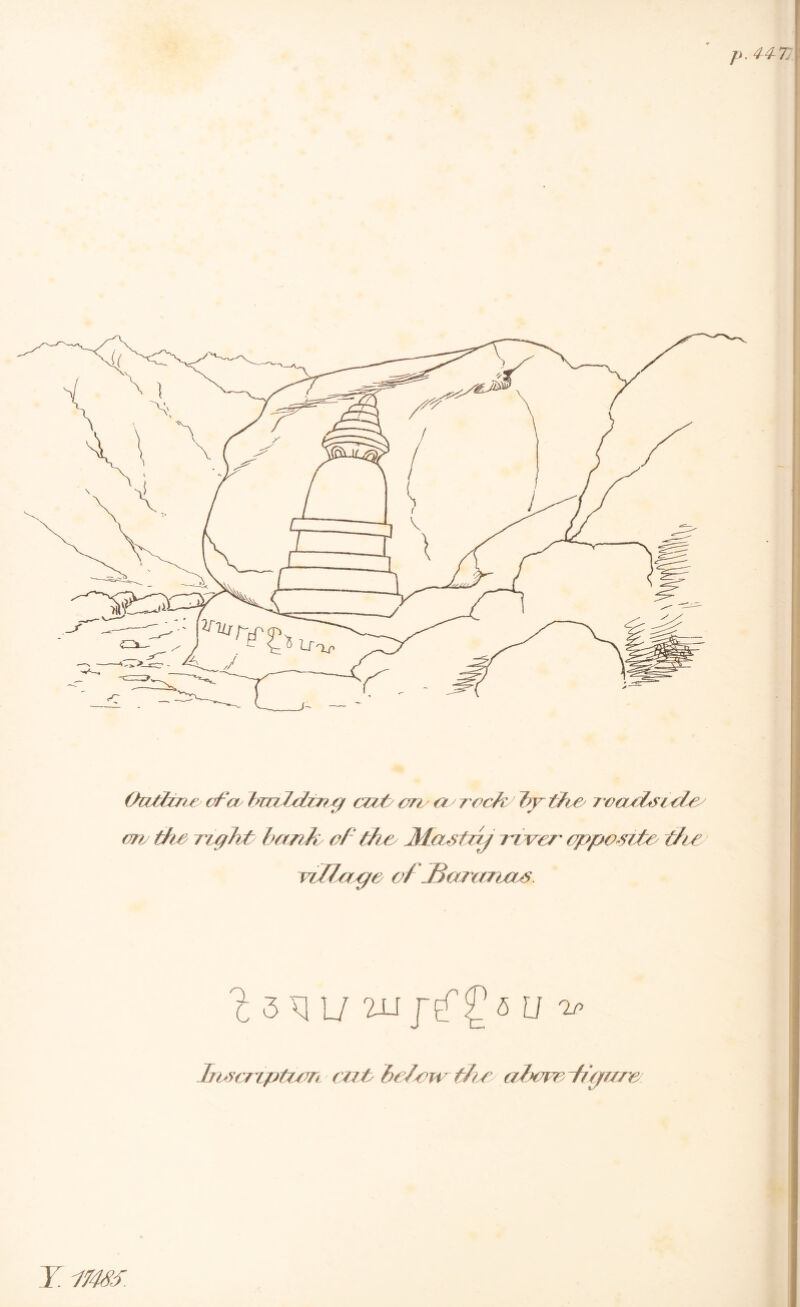 p. 447.
Outline of a building cut on a rock by the roadside
on the right bank of the Mastuj river opposite the
village of Baranas.
Inscription cut below the above figure.
Y. 17485.